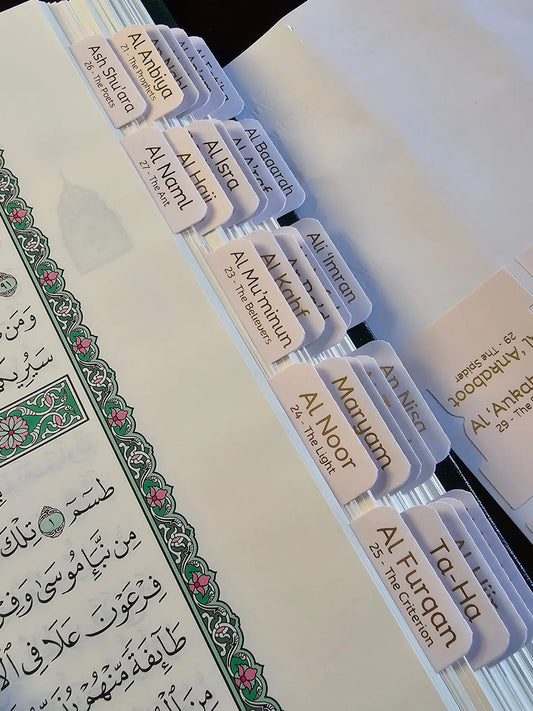 Ash Shu'ara
26 - The Poets
Al Anbiya
21 - The Prophets
Al Naml
27 - The Ant
Al Hajj
Al Isra
Al Baqarah
Al Mu'minun
23 - The Believers
Al Kahf
Ali 'Imran
Al Noor
24 - The Light
Maryam
An Nisa
Al Furqan
25 - The Criterion
Ta-Ha
Al 'Ankaboot
29 - The Spider
Al 'Ankab
29 - The
وَمَن
سَيُرِيكُمْ
طسٓمٓ ١ تِلْكَ
مِن نَّبَإِ مُوسَىٰ وَفِرْ
فِرْعَوْنَ عَلَا فِى ٱلْأَ
طَآئِفَةً مِّنْهُمْ
مِنَ